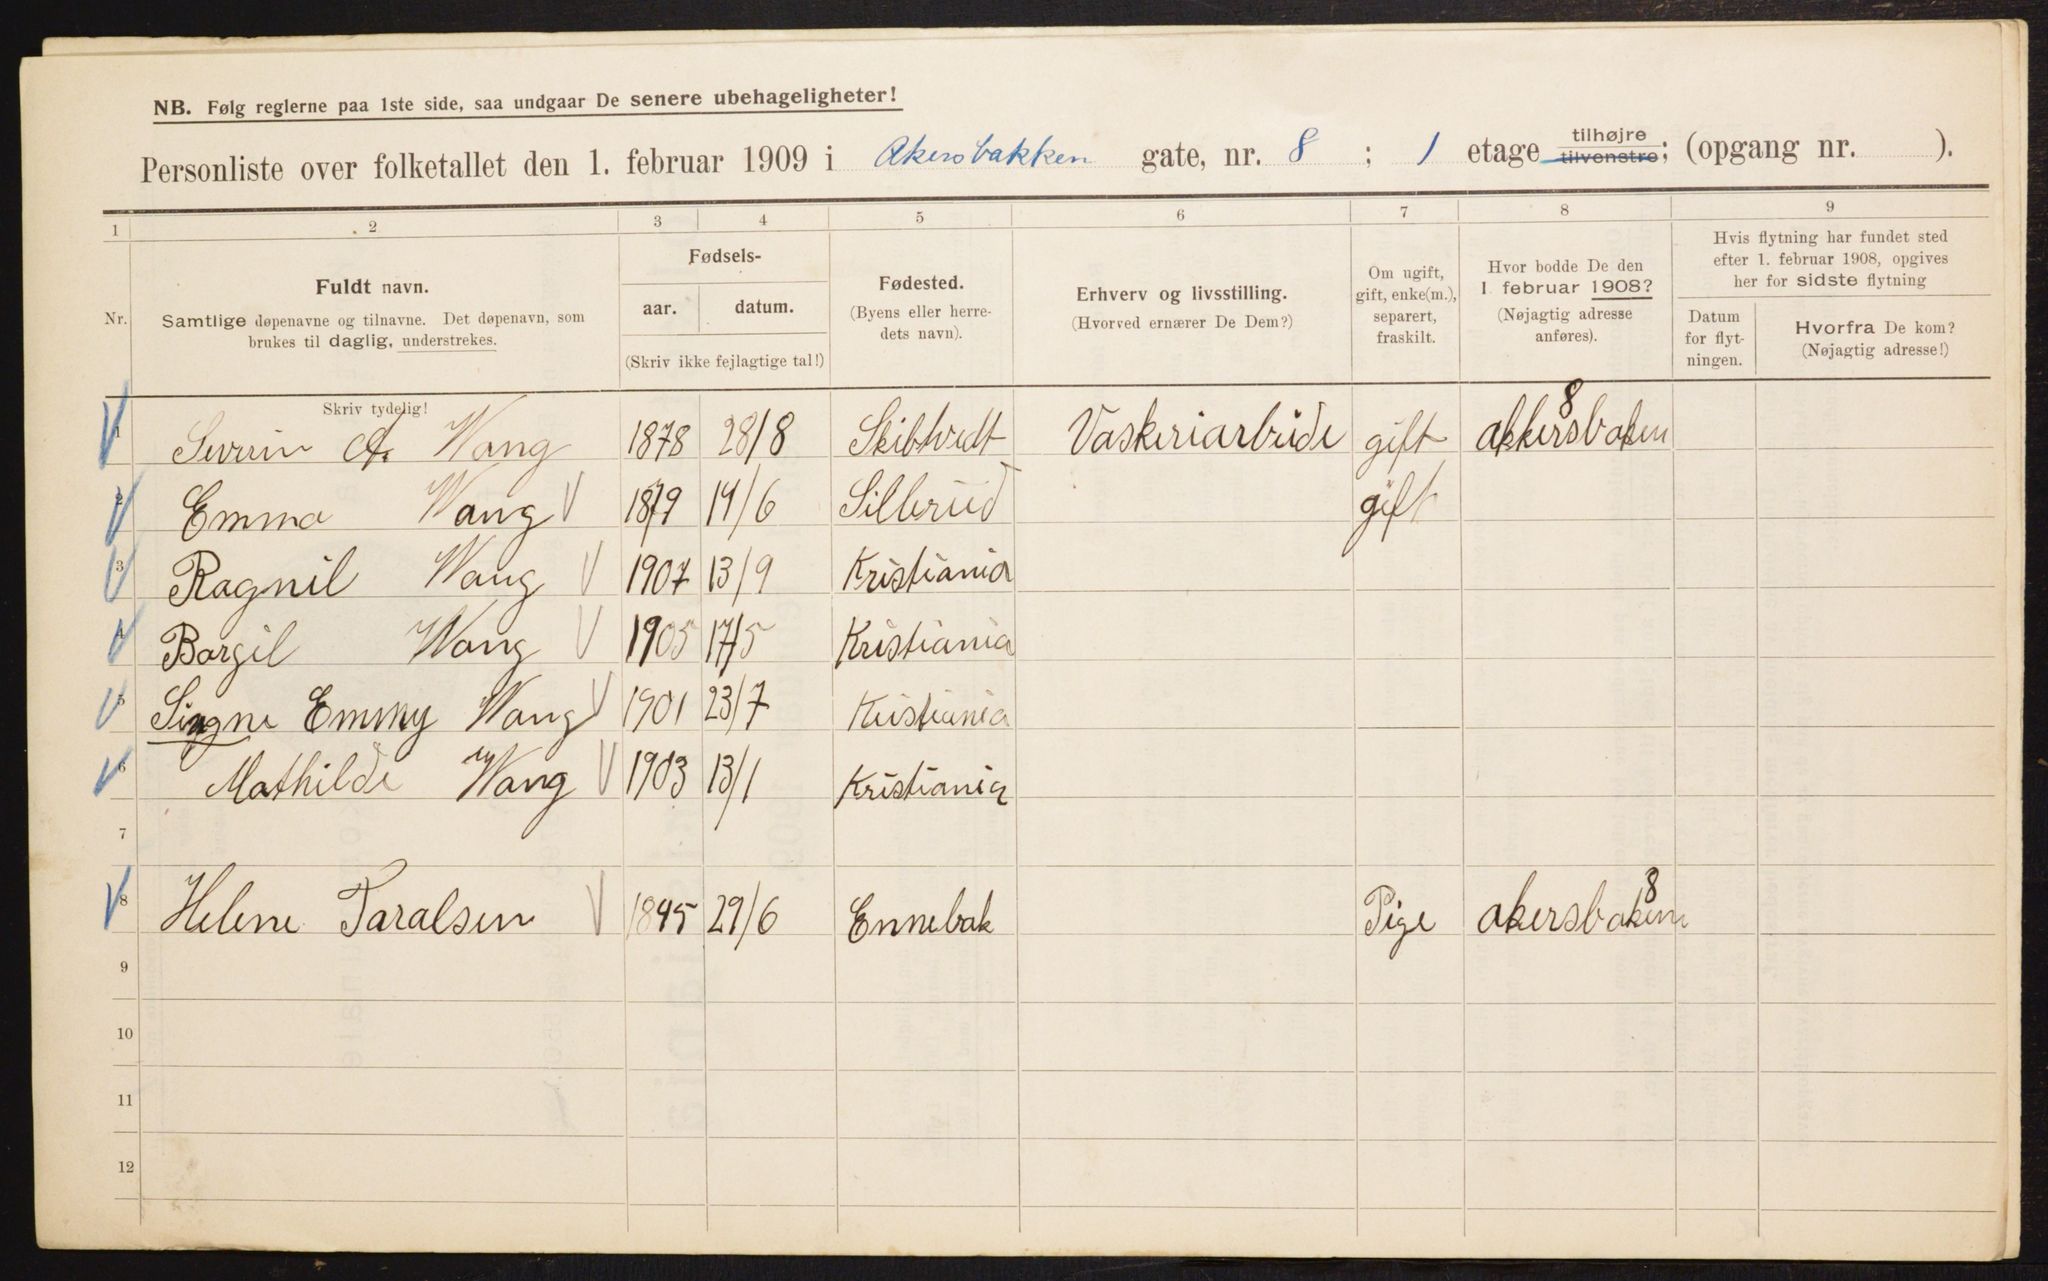 NB. Følg reglerne paa 1ste side, saa undgaar De senere ubehageligheter!
Personliste over folketallet den 1. februar 1909 i Akersbakken gate, nr. 8 ; 1 etage tilhøjre tilvenstre; (opgang nr. ).
1 2 3 4 5 6 7 8 9
Nr.
Fuldt navn.
Samtlige døpenavne og tilnavne. Det døpenavn, som
brukes til daglig, understrekes.
Fødsels-
aar. datum.
(Skriv ikke fejlagtige tal!)
Fødested.
(Byens eller herre-
dets navn).
Erhverv og livsstilling.
(Hvorved ernærer De Dem?)
Om ugift,
gift, enke(m.),
separert,
fraskilt.
Hvor bodde De den
1 februar 1908?
(Nøjagtig adresse
anføres).
Hvis flytning har fundet sted
efter 1. februar 1908, opgives
her for sidste flytning
Datum
for flyt-
ningen.
Hvorfra De kom?
(Nøjagtig adresse!)
Skriv tydelig!
1 Severin A. Wang 1878 28/8 Skibtvedt Vaskeriarbeide gift akkersbaken 8
2 Emma Wang 1879 14/6 Sillerud gift
3 Ragnil Wang 1907 13/9 Kristiania
4 Borgil Wang 1905 17/5 Kristiania
5 Singne Emmy Wang 1901 23/7 Kristiania
6 Mathilde Wang 1903 13/1 Kristiania
7
8 Helene Taralsen 1845 29/6 Ennebak Pige akersbaken 8
9
10
11
12